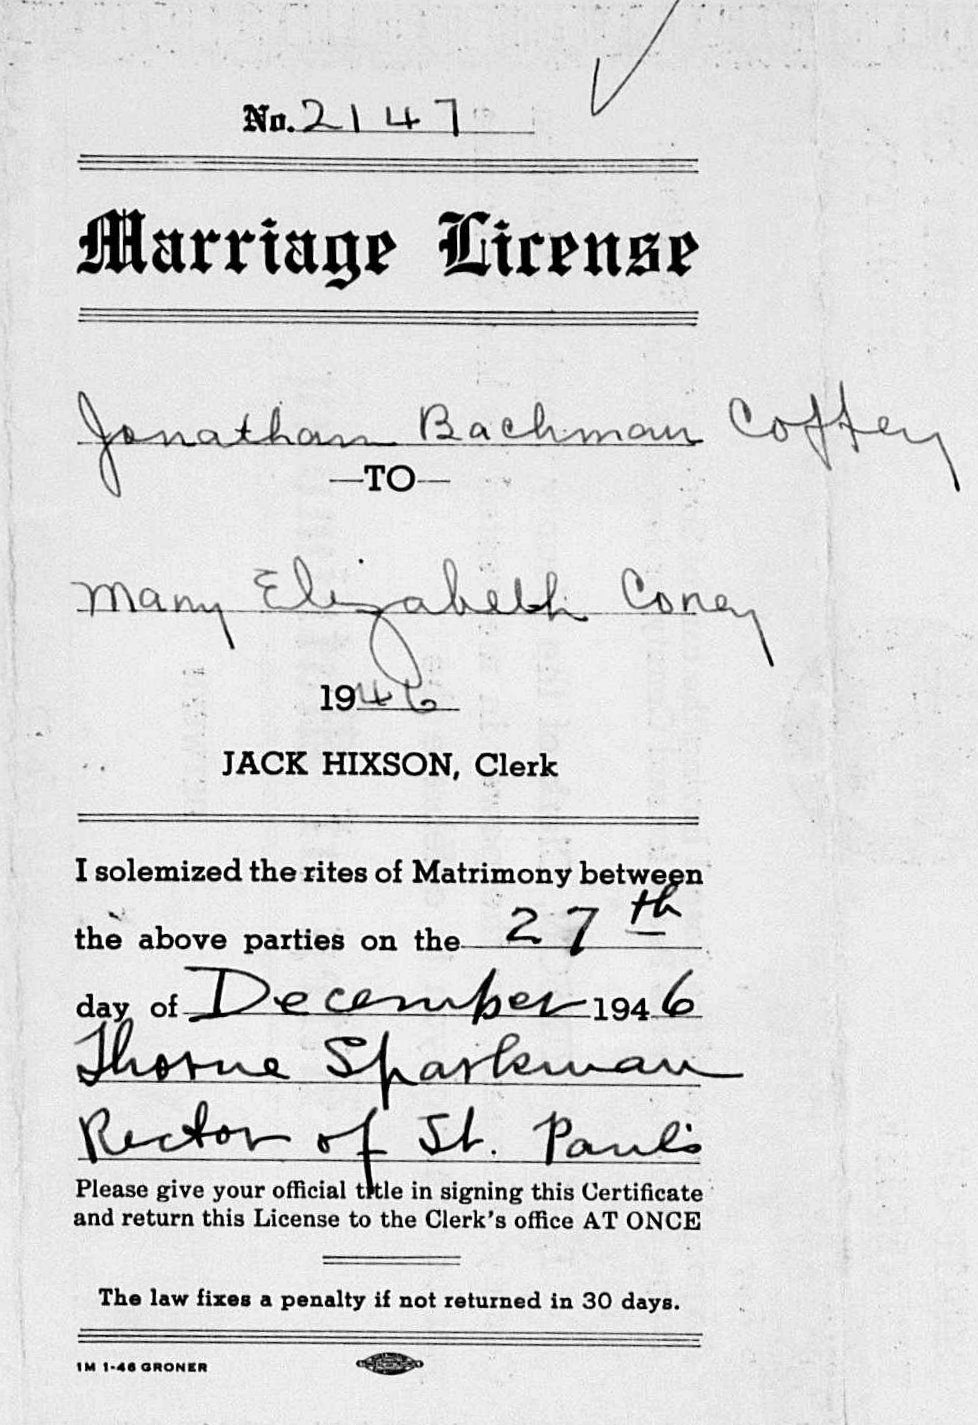 No. 2147
Marriage License
Jonathan Bachman Coffey
—TO—
Mary Elizabeth Coney
1946
JACK HIXSON, Clerk
I solemized the rites of Matrimony between
the above parties on the 27th
day of December 1946
Thorne Sparkman
Rector of St. Paul's
Please give your official title in signing this Certificate
and return this License to the Clerk's office AT ONCE
The law fixes a penalty if not returned in 30 days.
1M 1-46 GRONER